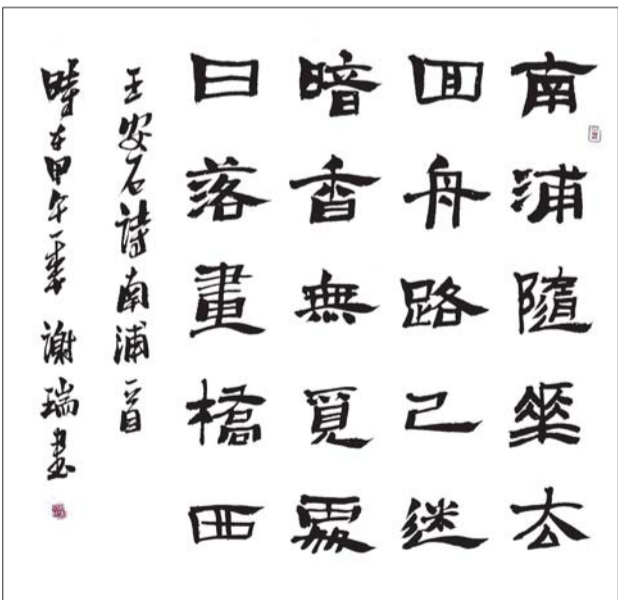 南浦隨華去
回舟路已迷
暗香無覓處
日落畫橋西
王安石詩南浦一首
時在甲午 謝瑞書